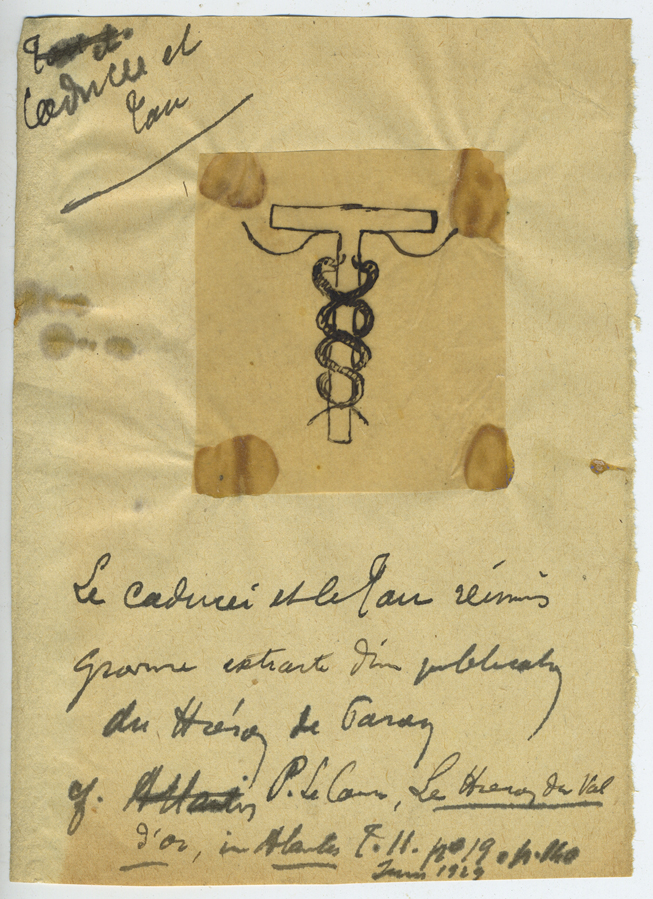 Caducée et
Tau
Le caducée et le Tau réunis
gravure extraite d'un publication
du Hiéron de Paray
cf. P. Le Cour, Le Hieron du Val
d'or, in Atlantis T. 11. no 19. p. 140
Juin 1929